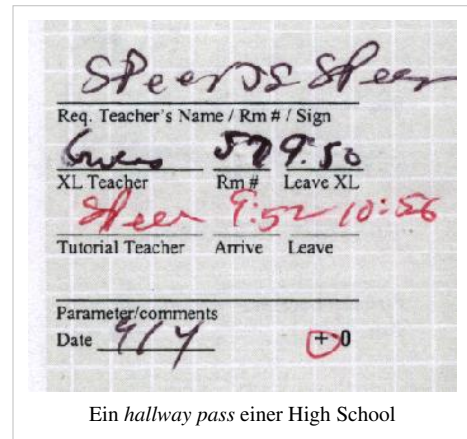 Speer Speer
Req. Teacher's Name / Rm # / Sign
57 9:50
XL Teacher Rm # Leave XL
Speer 9:52 10:56
Tutorial Teacher Arrive Leave
Parameter/comments
Date 9/4 + 0
Ein hallway pass einer High School